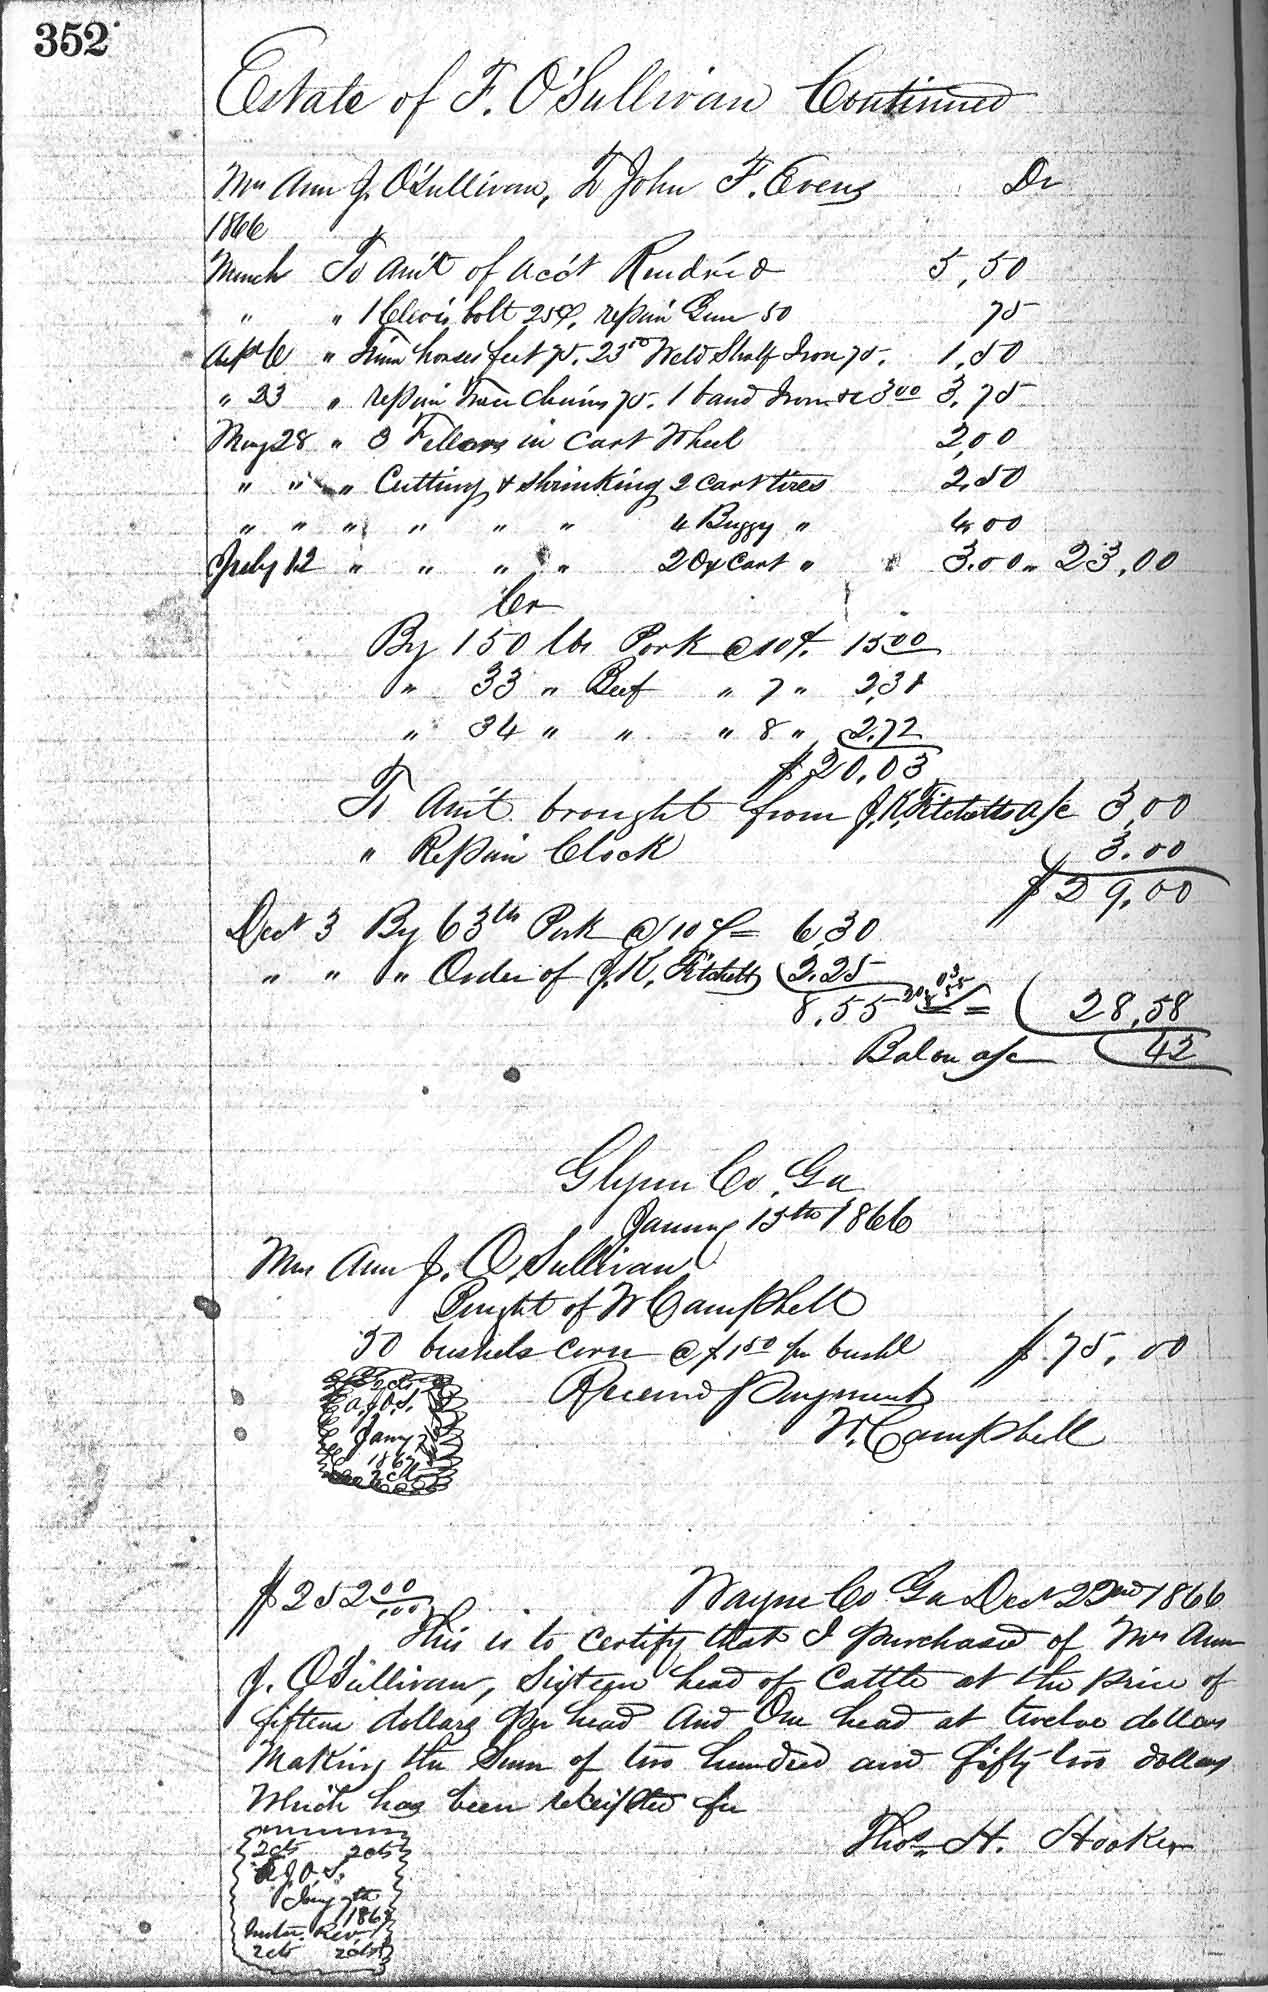 352
Estate of F. O'Sullivan Continued
Mrs Ann J. O'Sullivan, To John F. Evens Dr
1866
March To Am't of Acc't Rendr'd 5,50
" " 1 Clevis bolt 25¢, repair Gun 50 75
Apl 6 " Trim horses feet 75. 23rd Weld Shaft Iron 75. 1,50
" 23 " repair Trace Chains 75. 1 band Iron &c 3 00 3.75
May 28 " 3 Felloes in Cart Wheel 2,00
" " " Cutting & Shrinking 2 cart tires 2,50
" " " " " " 4 Buggy " 4,00
July 12 " " " " 2 Ox Cart " 3.00 " 23,00
Cr
By 150 lbs Pork @ 10¢. 15 00
" 33 " Beef " 7 " 2,31
" 34 " " " 8 " 2.72
$20,03
To Am't brought from J. K. Fitchetts a/c 3,00
" Repair Clock 3.00
$29,00
Dect 3 By 63 lb Pork @ 10¢ = 6,30
" " " Order of J. K. Fitchett 2.25
8,55 = 28,58
Bal on a/c 42
Glynn Co, Ga
January 15th 1866
Mrs Ann J. O,Sullivan
Bought of W Campbell
50 bushels corn @ $1 50 per bushl $75,00
Received Payment
W. Campbell
2 cts
A.J.O.S.
Jany 7
1867
2 cts
$252 00/,00 Wayne Co Ga Dect 22nd 1866
This is to certify that I purchased of Mrs Ann
J. O'Sullivan, Sixteen head of Cattle at the price of
fifteen dollars per head And One head at twelve dollars
Making the Sum of two hundred and fifty two dollars
Which has been receipted for
Thos. H. Hooker
2cts 2cts
A.J.O.S.
Jany 7th
186
Inter. Rev.
2cts 2cts